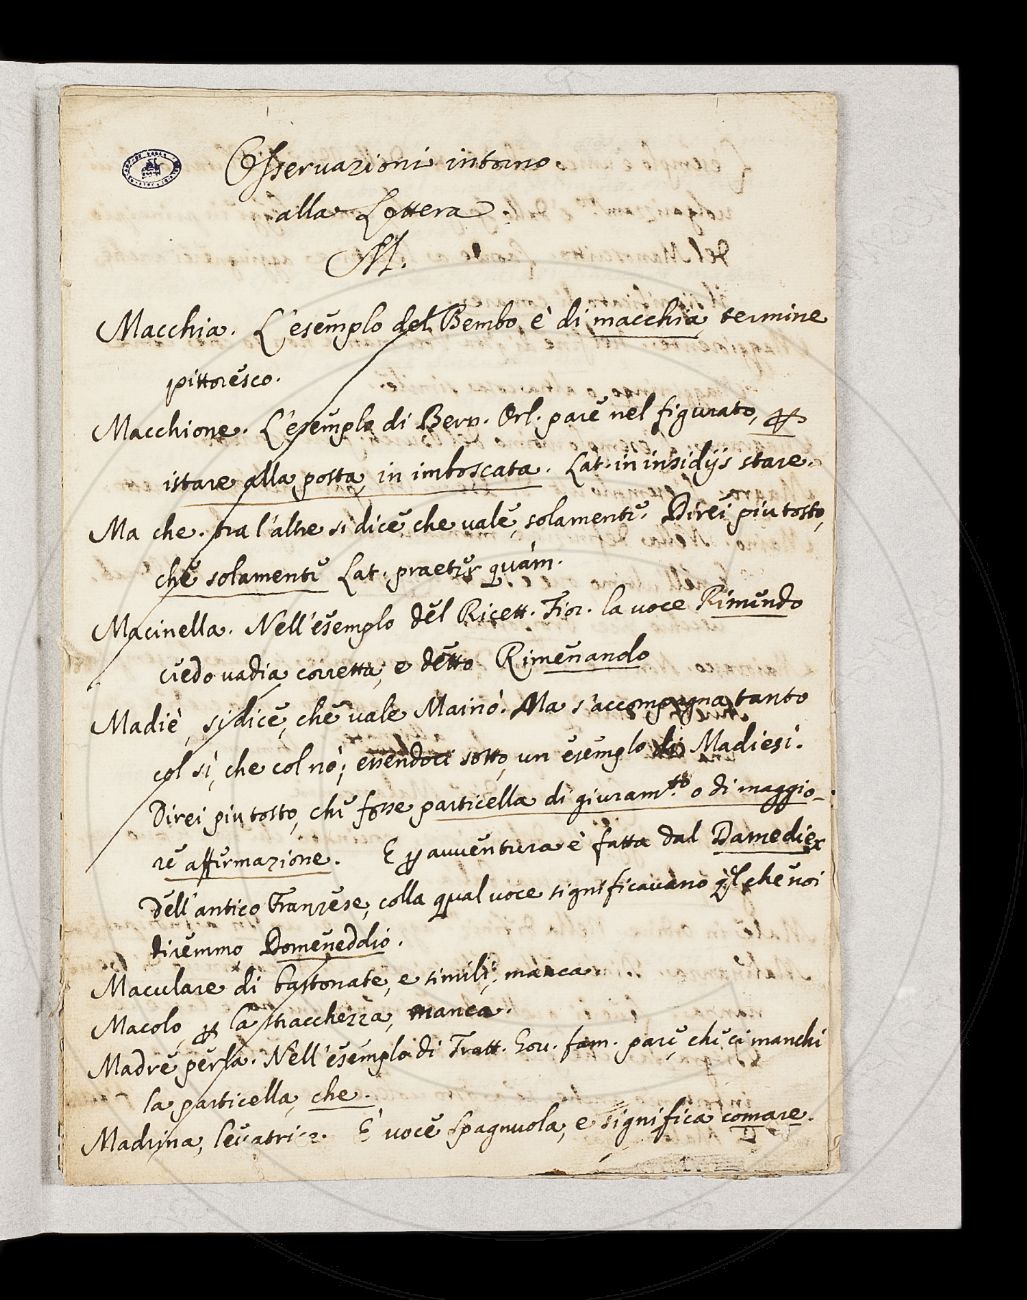 Osservazioni intorno
alla Lettera
M.
Macchia. L'esemplo del Bembo è di macchia termine
pittoresco.
Macchione. L'esemplo di Bern. Orl. pare nel figurato, ꝑ
istare alla posta, in imboscata. Lat. in insidijs stare.
Ma che. tra l'altre si dice, che vale, solamente. Direi piu tosto,
che solamente Lat. praeter quàm.
Macinella. Nell'esemplo del Ricett. Fior. la voce Rimundo
credo vadia corretta, e detto Rimenando
Madiè, si dice, che vale Mainò. Ma s'accompagna tanto
col sì, che col nò; essendoci sotto, un esemplo di Madiesì.
Direi piu tosto, che fosse particella di giuram.to o di maggio-
re affermazione. E ꝑ avventura è fatta dal Damediex
dell'antico Franzese, colla qual voce significavano ql che noi
diremmo Domeneddio.
Maculare di bastonate, e simili, manca.
Macolo, ꝑ la stracchezza, manca.
Madre perla. Nell'esemplo di Tratt. Gov. fam. pare, che ci manchi
la particella, che.
Madrina, levatrice. È voce Spagnuola, e significa comare.